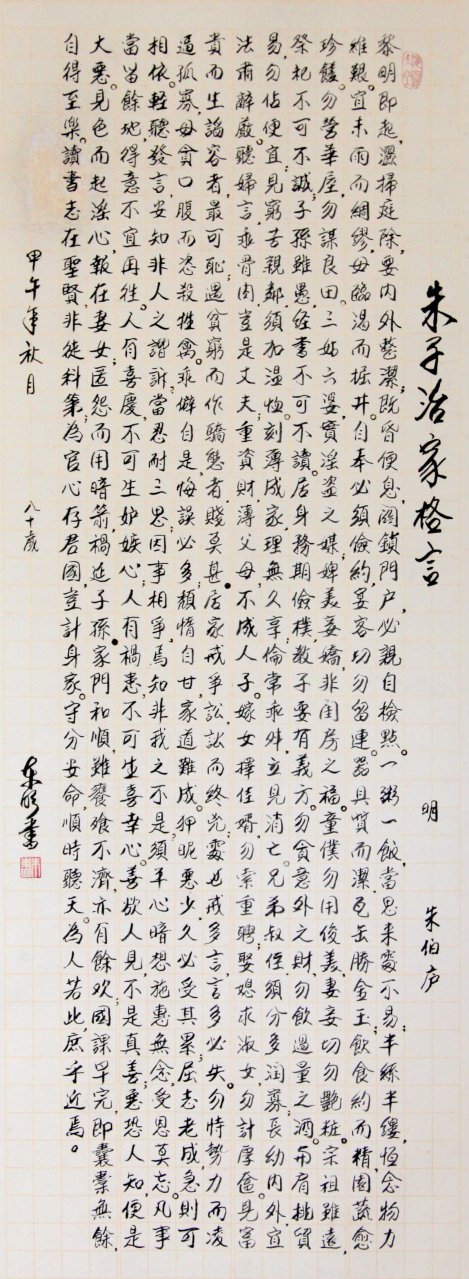 朱子治家格言 明 朱伯庐
黎明即起,灑掃庭除,要内外整潔;既昏便息,関鎖門户,必親自檢點。一粥一飯,當思来處不易;半絲半縷,恆念物力
維艱。宜未雨而綢繆,毋臨渴而掘井。自奉必須儉約,宴客切勿留連。器具質而潔,瓦缶勝金玉;飲食約而精,園蔬愈
珍饈。勿營華屋,勿謀良田。三姑六婆,實淫盗之媒;婢美妾嬌,非閨房之福。童僕勿用俊美,妻妾切勿艷粧。宗祖雖遠,
祭祀不可不誠;子孫雖愚,経書不可不讀。居身務期儉樸,教子要有義方。勿貪意外之財,勿飲過量之酒。与肩挑貿
易,勿佔便宜;見窮苦親鄰,須加温恤。刻薄成家,理無久享;倫常乖舛,立見消亡。兄弟叔侄,須分多润寡;長幼内外,宜
法肅辭嚴。聽婦言,乖骨肉,豈是丈夫;重資財,薄父母,不成人子。嫁女擇佳婿,勿索重聘;娶媳求淑女,勿計厚奩。見富
貴而生諂容者,最可恥;遇貧窮而作驕態者,賤莫甚。居家戒爭訟,訟而終凶;處世戒多言,言多必失。勿恃勢力而凌
逼孤寡,毋貪口腹而恣殺牲禽。乖僻自是,悔誤必多;頹惰自甘,家道難成。狎昵惡少,久必受其累;屈志老成,急則可
相依。輕聽發言,安知非人之譖訴,當忍耐三思;因事相爭,焉知非我之不是,須平心暗想。施惠無念,受恩莫忘。凡事
當留餘地,得意不宜再往。人有喜慶,不可生妒嫉心;人有禍患,不可生喜幸心。善欲人見,不是真善;惡恐人知,便是
大惡。見色而起淫心,報在妻女;匿怨而用暗箭,禍延子孫。家門和順,雖饔飧不濟,亦有餘欢;國課早完,即囊橐無餘,
自得至樂。讀書志在聖賢,非徒科第;為官心存君國,豈計身家。守分安命,順時聽天。為人若此,庶乎近焉。
甲午年秋月 八十歲 書